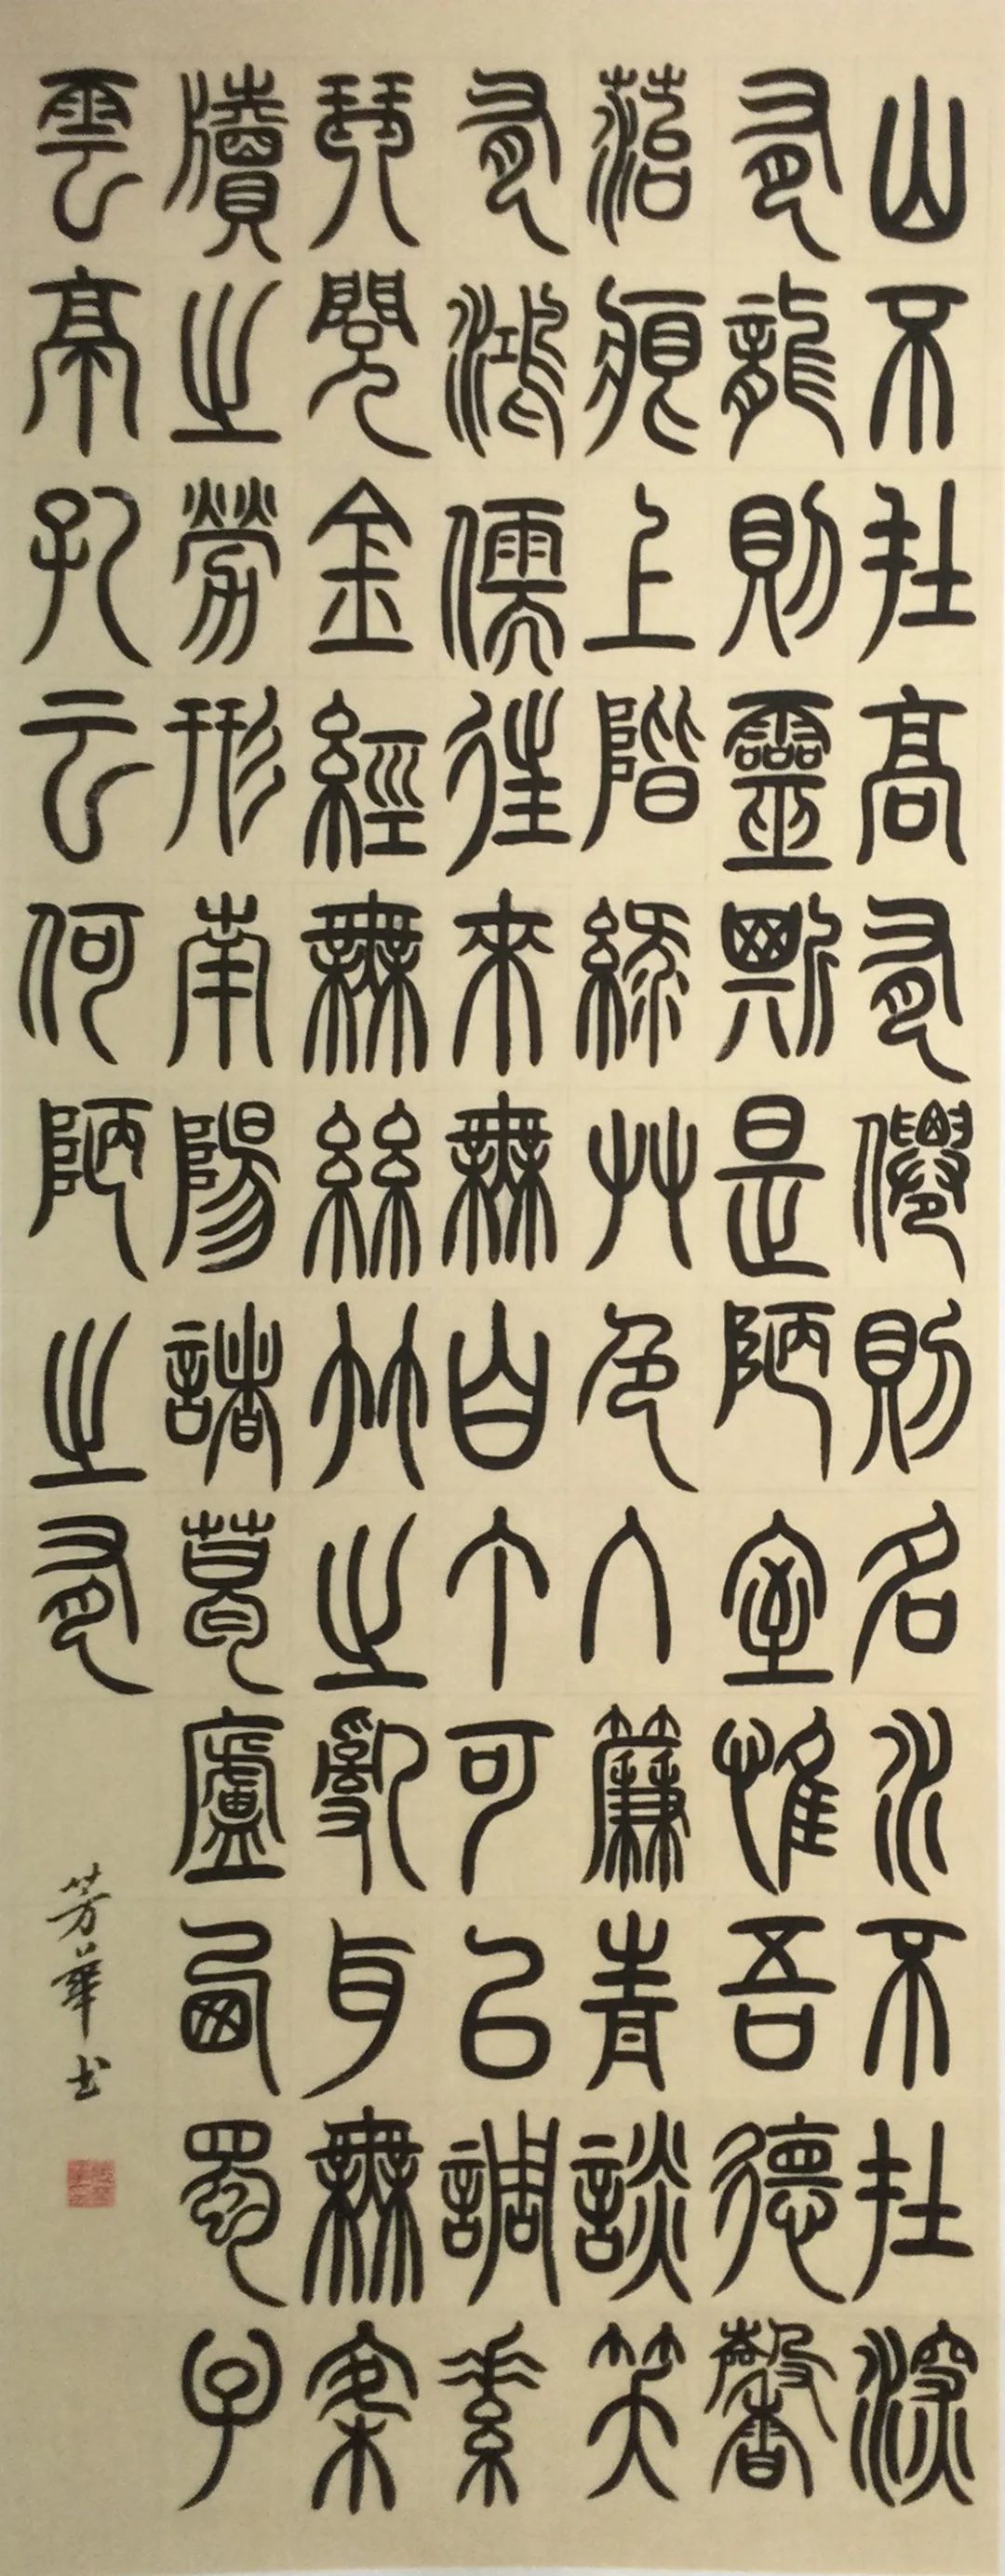 山不在高有僊則名水不在深
有龍則靈斯是陋室惟吾德馨
菭痕上階綠艸色入簾青談笑
有鴻儒往來無白丁可以調素
琴閱金經無絲竹之亂耳無案
牘之勞形南陽諸葛廬西蜀子
雲亭孔云何陋之有
芳華书